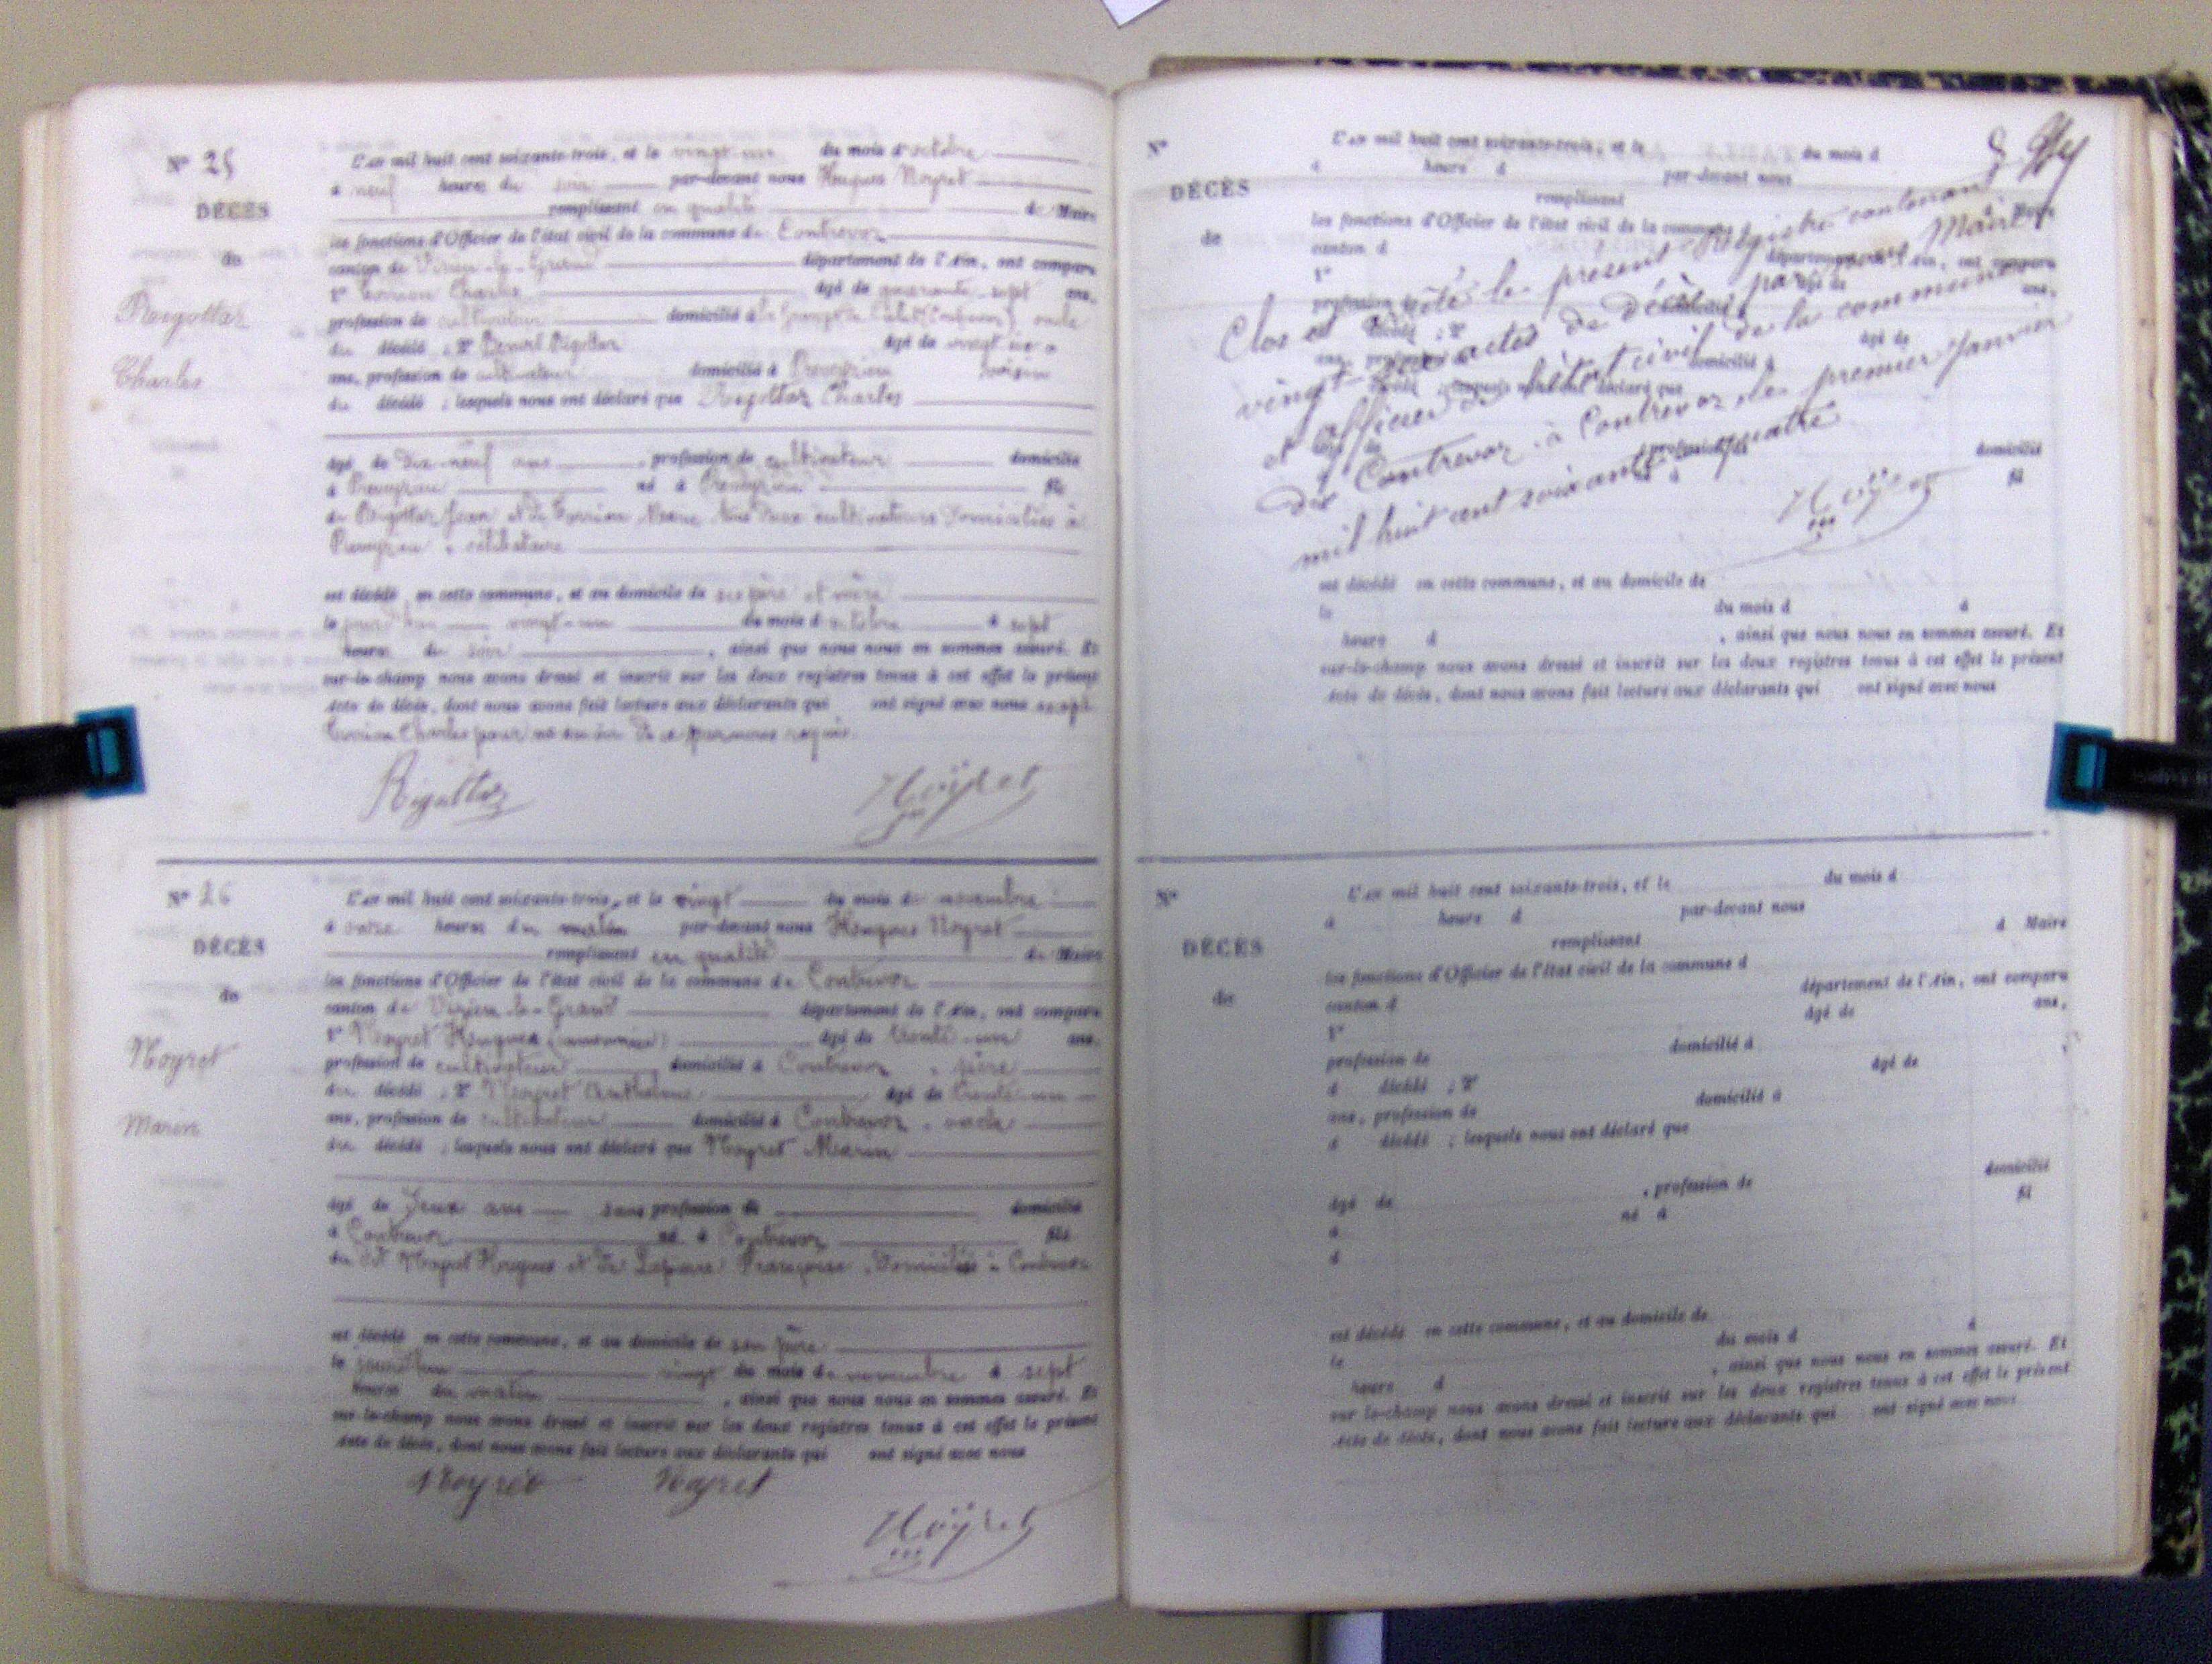 N° 25
DÉCÈS
de
Rigottaz
Charles
L'an mil huit cent soixante-trois, et le vingt-un du mois d'octobre
à neuf heures du soir par-devant nous Hugues Noyret
remplissant en qualité de Maire
les fonctions d'Officier de l'état civil de la commune de Contrevoz
canton de Virieu-le-Grand département de l'Ain, ont comparu
1° Charles âgé de quarante-sept ans,
profession de cultivateur domicilié à oncle
du décédé ; 2° Benoit Rigottaz âgé de vingt
ans, profession de cultivateur domicilié à Preveyzieu voisin
du décédé ; lesquels nous ont déclaré que Rigottaz Charles
âgé de Dix-neuf ans, profession de cultivateur domicilié
à Preveyzieu né à Preveyzieu fils
de Rigottaz Jean et de tous deux cultivateurs Domiciliés à
Preveyzieu, célibataire
est décédé en cette commune, et au domicile de ses père et mère
le jourd'hui vingt-un du mois d'octobre à sept
heures du soir, ainsi que nous nous en sommes assuré. Et
sur-le-champ nous avons dressé et inscrit sur les deux registres tenus à cet effet le présent
Acte de décès, dont nous avons fait lecture aux déclarants qui ont signé avec nous excepté
Charles pour ne savoir De ce par nous requis.
Rigottaz Noÿret
N° 26
DÉCÈS
de
Noyret
Marin
L'an mil huit cent soixante-trois, et le vingt du mois de novembre
à onze heures du matin par-devant nous Hugues Noyret
remplissant en qualité de Maire
les fonctions d'Officier de l'état civil de la commune de Contrevoz
canton de Virieu-le-Grand département de l'Ain, ont comparu
1° Noyret Hugues âgé de trente-un ans,
profession de cultivateur, domicilié à Contrevoz, père
du décédé ; 2° Noyret Anthelme âgé de trente-un
ans, profession de cultivateur domicilié à Contrevoz, oncle
du décédé ; lesquels nous ont déclaré que Noyret Marin
âgé de Deux ans sans profession de domicilié
à Contrevoz né à Contrevoz fils
du dit Noyret Hugues et de Lapierre Françoise, Domiciliés à Contrevoz
est décédé en cette commune, et au domicile de son père
le jourd'hui vingt du mois de novembre à sept
heures du matin, ainsi que nous nous en sommes assuré. Et
sur-le-champ nous avons dressé et inscrit sur les deux registres tenus à cet effet le présent
Acte de décès, dont nous avons fait lecture aux déclarants qui ont signé avec nous
Noyret Noyret
Noÿret
N°
DÉCÈS
de
L'an mil huit cent soixante-trois, et le du mois d
à heure d par-devant nous
remplissant d Maire
les fonctions d'Officier de l'état civil de la commune d
canton d département de l'Ain, ont comparu
1° âgé de ans,
profession de domicilié à
d décédé ; 2° âgé de
ans, profession de domicilié à
d décédé ; lesquels nous ont déclaré que
Clos et arrêté le présent Registre contenant
vingt-six actes de Décès, par nous Maire
et officier de l'état civil de la commune
de Contrevoz, à Contrevoz, le premier Janvier
mil huit cent soixante-quatre
Noÿret
âgé de, profession de domicilié
né à fil
est décédé en cette commune, et au domicile de
le du mois d à
heure d, ainsi que nous nous en sommes assuré. Et
sur-le-champ nous avons dressé et inscrit sur les deux registres tenus à cet effet le présent
Acte de décès, dont nous avons fait lecture aux déclarants qui ont signé avec nous
N°
DÉCÈS
de
L'an mil huit cent soixante-trois, et le du mois d
à heure d par-devant nous
remplissant d Maire
les fonctions d'Officier de l'état civil de la commune d
canton d département de l'Ain, ont comparu
1° âgé de ans,
profession de domicilié à
d décédé ; 2° âgé de
ans, profession de domicilié à
d décédé ; lesquels nous ont déclaré que
âgé de, profession de domicilié
à né à fil
d
est décédé en cette commune, et au domicile de
le du mois d à
heure d, ainsi que nous nous en sommes assuré. Et
sur-le-champ nous avons dressé et inscrit sur les deux registres tenus à cet effet le présent
Acte de décès, dont nous avons fait lecture aux déclarants qui ont signé avec nous